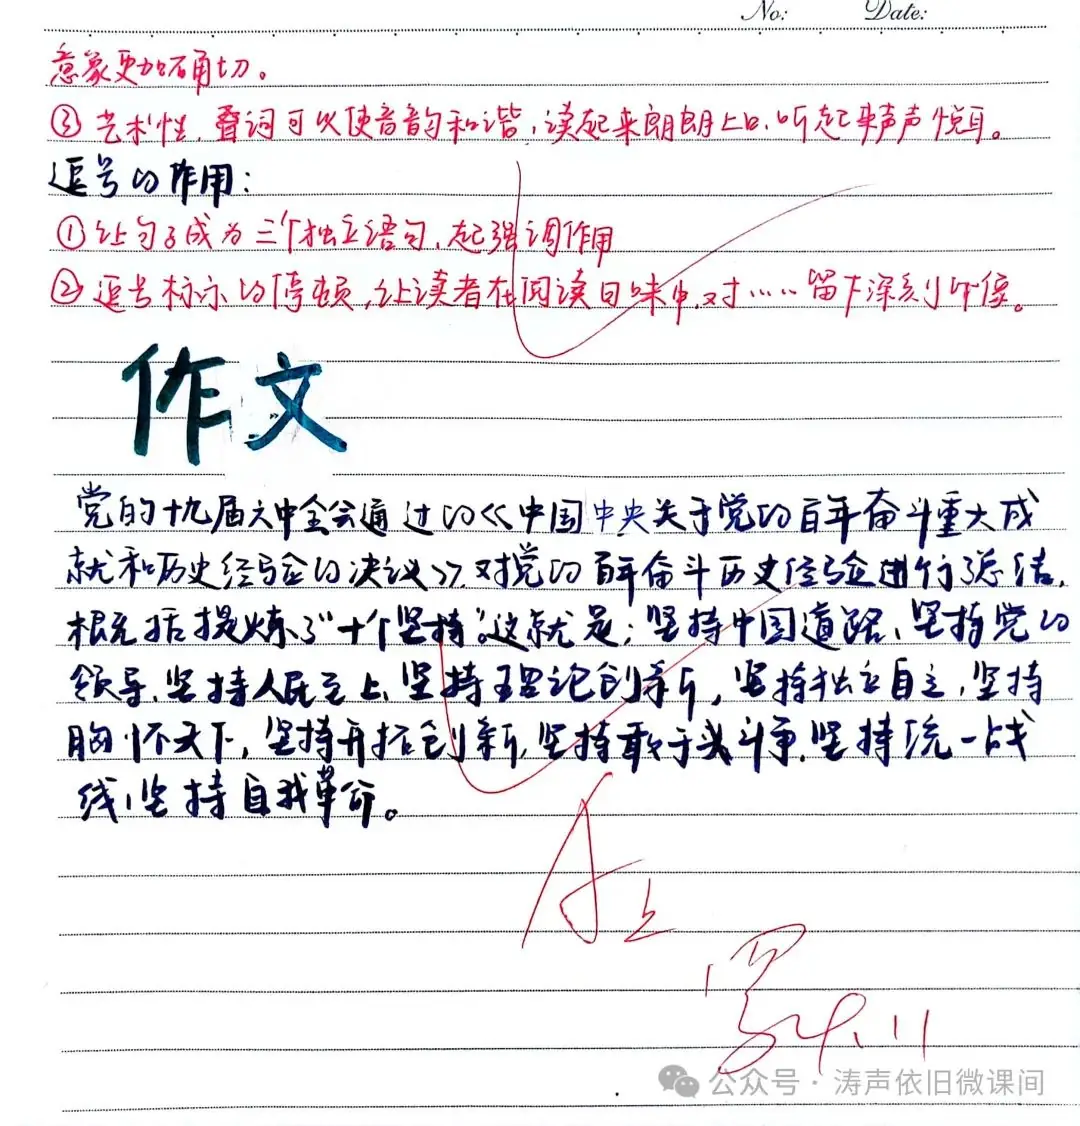 No: Date:
意象更加确切。
③艺术性,叠词可以使音韵和谐,读起来朗朗上口,听起来声声悦耳。
逗号的作用:
①让句子成为三个独立语句,起强调作用
②逗号标示的停顿,让读者在阅读回味中,对……留下深刻印像。
作文
党的十九届六中全会通过的《中国中央关于党的百年奋斗重大成
就和历史经验的决议》,对党的百年奋斗历史经验进行总结,
概括提炼了“十个坚持”。这就是:坚持中国道路、坚持党的
领导、坚持人民至上、坚持理论创新,坚持独立自主,坚持
胸怀天下,坚持开拓创新,坚持敢于斗争,坚持统一战
线,坚持自我革命。
A上
公众号·涛声依旧微课间